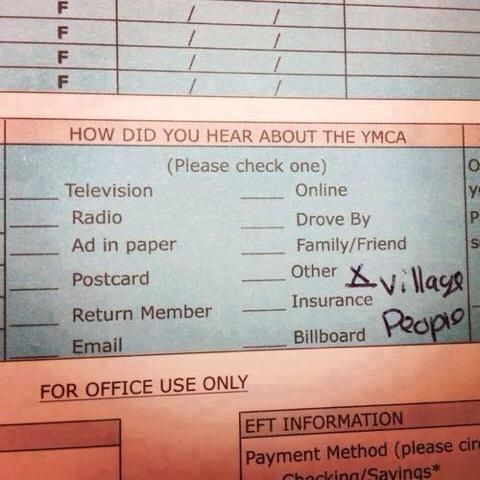 F / /
F / /
F / /
F / /
HOW DID YOU HEAR ABOUT THE YMCA
(Please check one)
___ Television ___ Online
___ Radio ___ Drove By
___ Ad in paper ___ Family/Friend
___ Postcard ___ Other X Village People
___ Return Member ___ Insurance
___ Email ___ Billboard
FOR OFFICE USE ONLY
EFT INFORMATION
Payment Method (please cir
Checking/Savings*